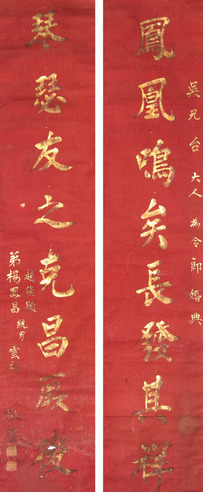 鳳凰鳴矣長發其祥
吳元台大人為令郎婚典
琴瑟友之克昌厥後
弟楊
昌